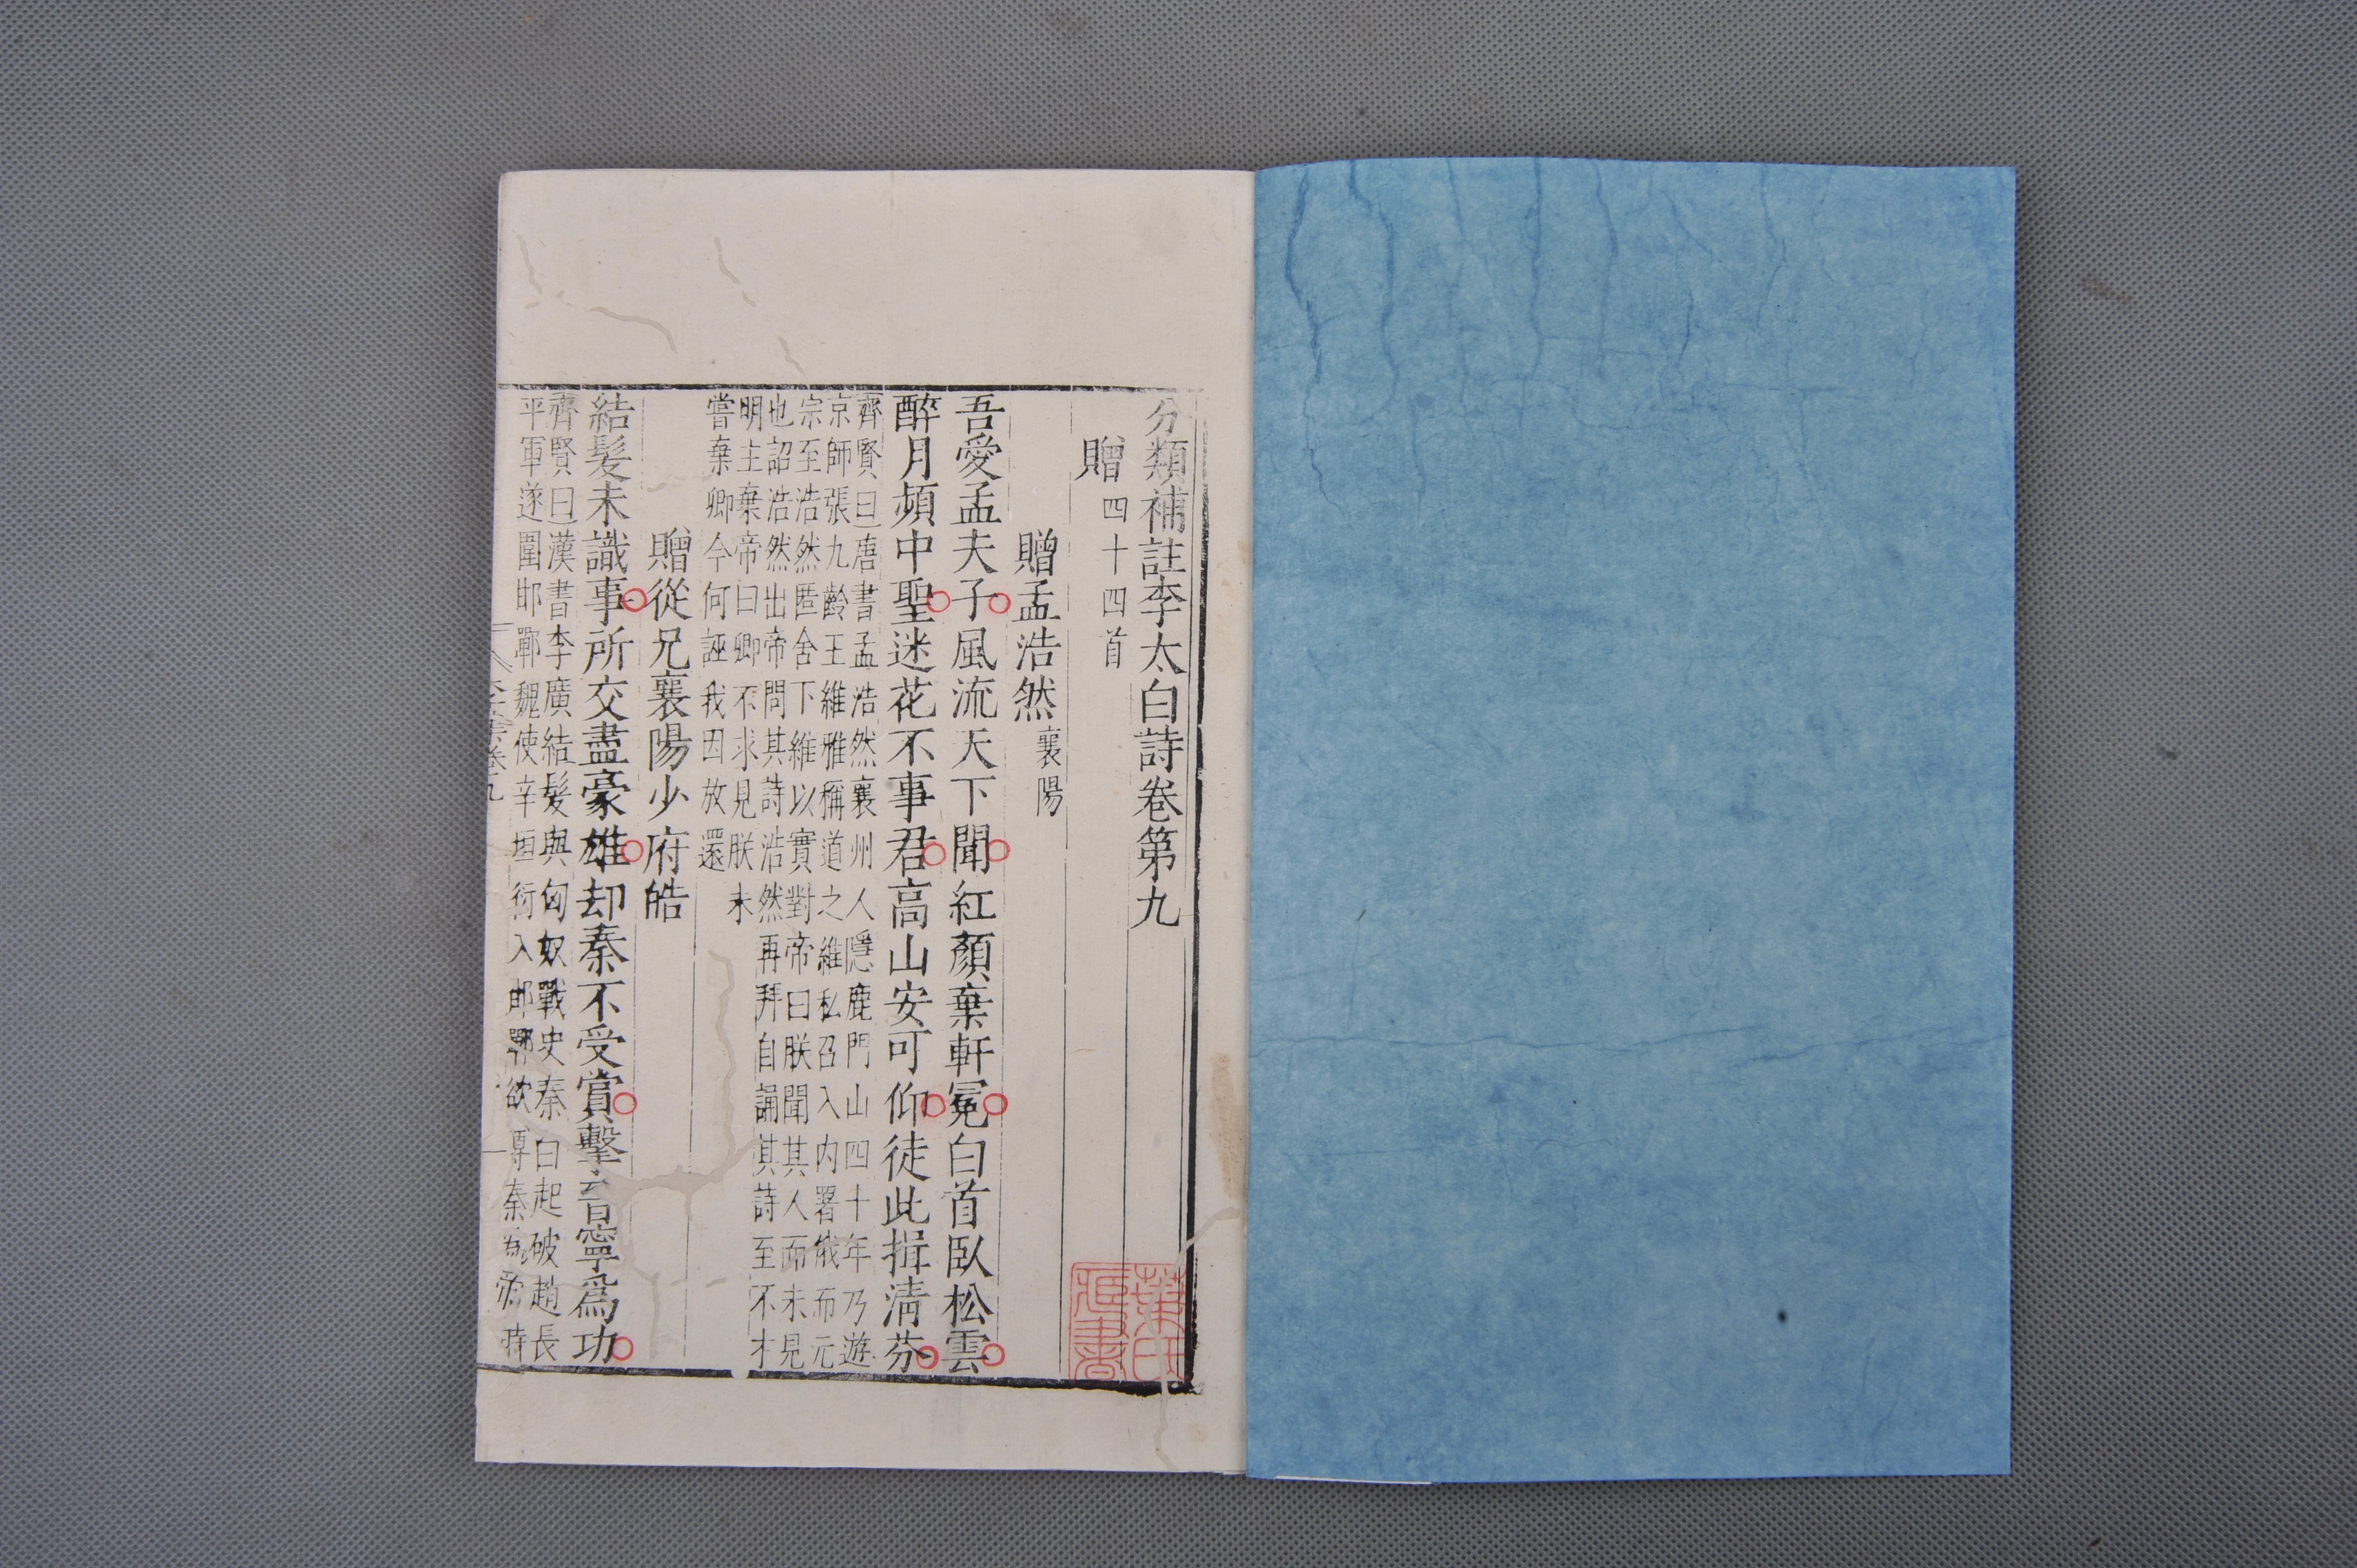 分類補註李太白詩卷第九
贈四十四首
贈孟浩然襄陽
吾愛孟夫子風流天下聞紅顏棄軒冕白首臥松雲
醉月頻中聖迷花不事君高山安可仰徒此揖清芬
齊賢曰唐書孟浩然襄州人隱鹿門山四十年乃遊
京師張九齡王維雅稱道之維私召入内署俄而元
宗至浩然匿舍下維以實對帝曰朕聞其人而未見
也詔浩然出帝問其詩浩然再拜自誦其詩至不才
明主棄帝曰卿不求見朕未
嘗棄卿今何誣我因放還
贈從兄襄陽少府皓
結髮未識事所交盡豪雄却秦不受賞擊晉寧爲功
齊賢曰漢書李廣結髮與匈奴戰史秦白起破趙長
平軍遂圍邯鄲魏使辛垣衍入邯鄲欲尊秦爲帝時
卷九
葉氏藏書